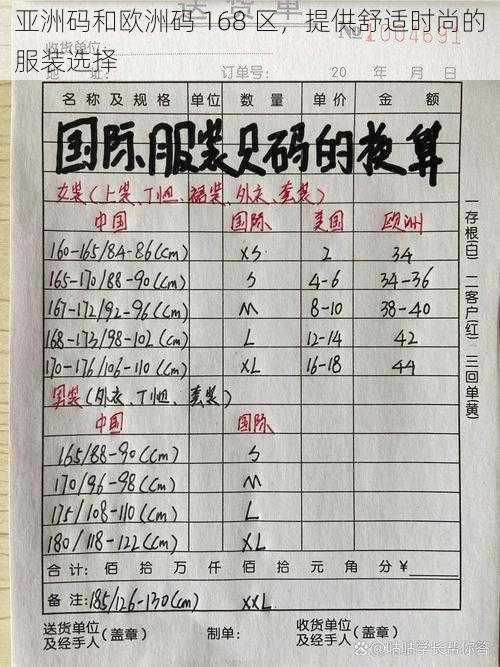 亚洲码和欧洲码 168 区，提供舒适时尚的
服装选择
送货单
No 1004691
订单号: 20 年 月 日
名称及规格 单位 数量 单价 金额
国际服装尺码的换算
女装(上装、T恤、裙装、外衣、套装)
中国 国际 美国 欧洲
160-165/84-86(cm) XS 2 34
165-170/88-90(cm) S 4-6 34-36
167-172/92-96(cm) M 8-10 38-40
168-173/98-102(cm) L 12-14 42
170-176/106-110(cm) XL 16-18 44
男装(外衣、T恤、套装)
中国 国际
165/88-90(cm) S
170/96-98(cm) M
175/108-110(cm) L
180/118-122(cm) XL
合计: 佰 拾 万 仟 佰 拾 元 角 分 ¥
备注: 185/126-130(cm) XXL
送货单位
及经手人(盖章) 制单: 收货单位
及经手人(盖章)
一存根(白) 二客户(红) 三回单(黄)